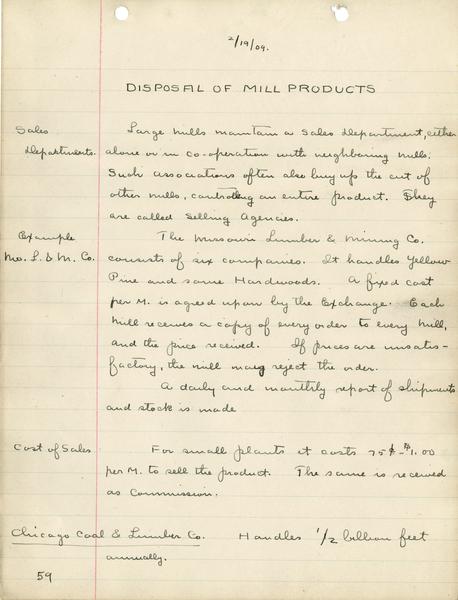 2/19/09.
DISPOSAL OF MILL PRODUCTS
Sales Large mills maintain a Sales Department, either
Departments. alone or in co-operation with neighboring mills.
Such associations often also buy up the cut of
other mills, controling an entire product. They
are called Selling Agencies.
Example The Missouri Lumber & Mining Co.
Mo. L. & M. Co. consists of six companies. It handles Yellow
Pine and some Hardwoods. A fixed cost
per M. is agreed upon by the Exchange. Each
mill receives a copy of every order to every mill,
and the price received. If prices are unsatis-
factory, the mill may reject the order.
A daily and monthly report of shipments
and stock is made
Cost of Sales For small plants it costs 75¢-$1.00
per M. to sell the product. The same is received
as commission.
Chicago Coal & Lumber Co. Handles 1/2 billion feet
annually.
59